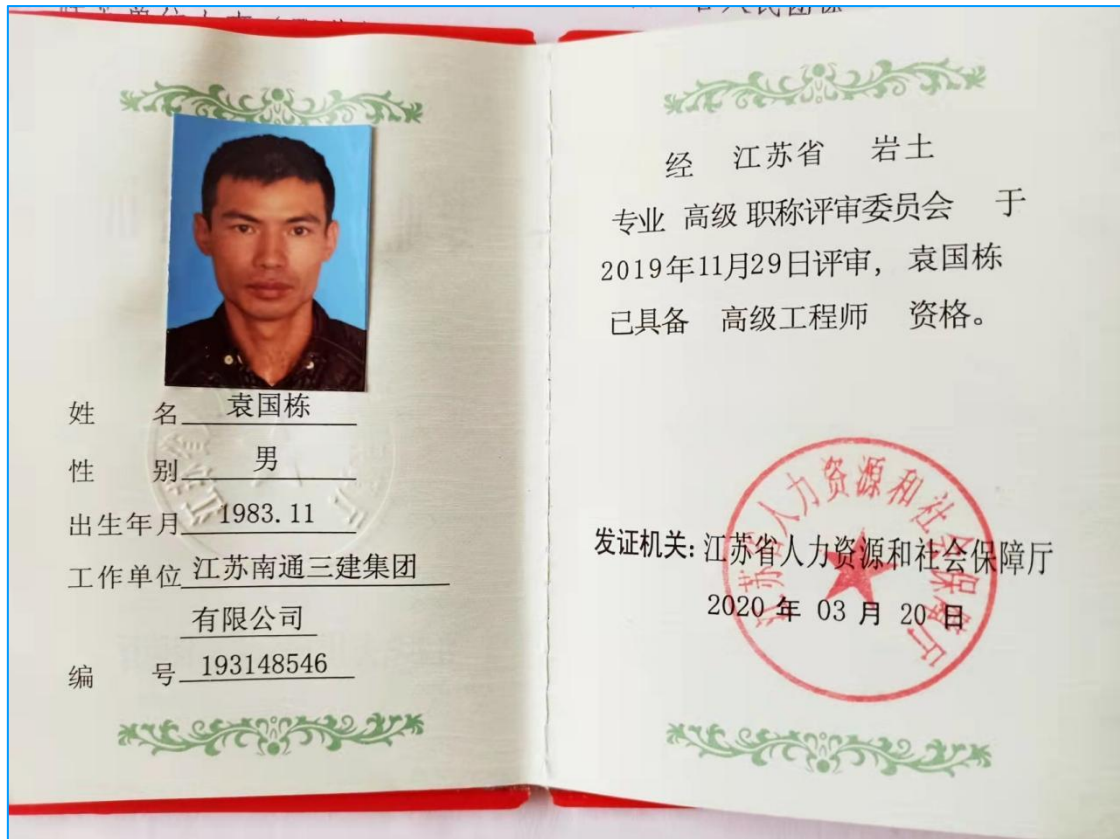 姓 名 袁国栋
性 别 男
出生年月 1983.11
工作单位 江苏南通三建集团
有限公司
编 号 193148546
经 江苏省 岩土
专业 高级 职称评审委员会 于
2019年11月29日评审，袁国栋
已具备 高级工程师 资格。
发证机关：江苏省人力资源和社会保障厅
2020 年 03 月 20 日
江苏省人力资源和社会保障厅